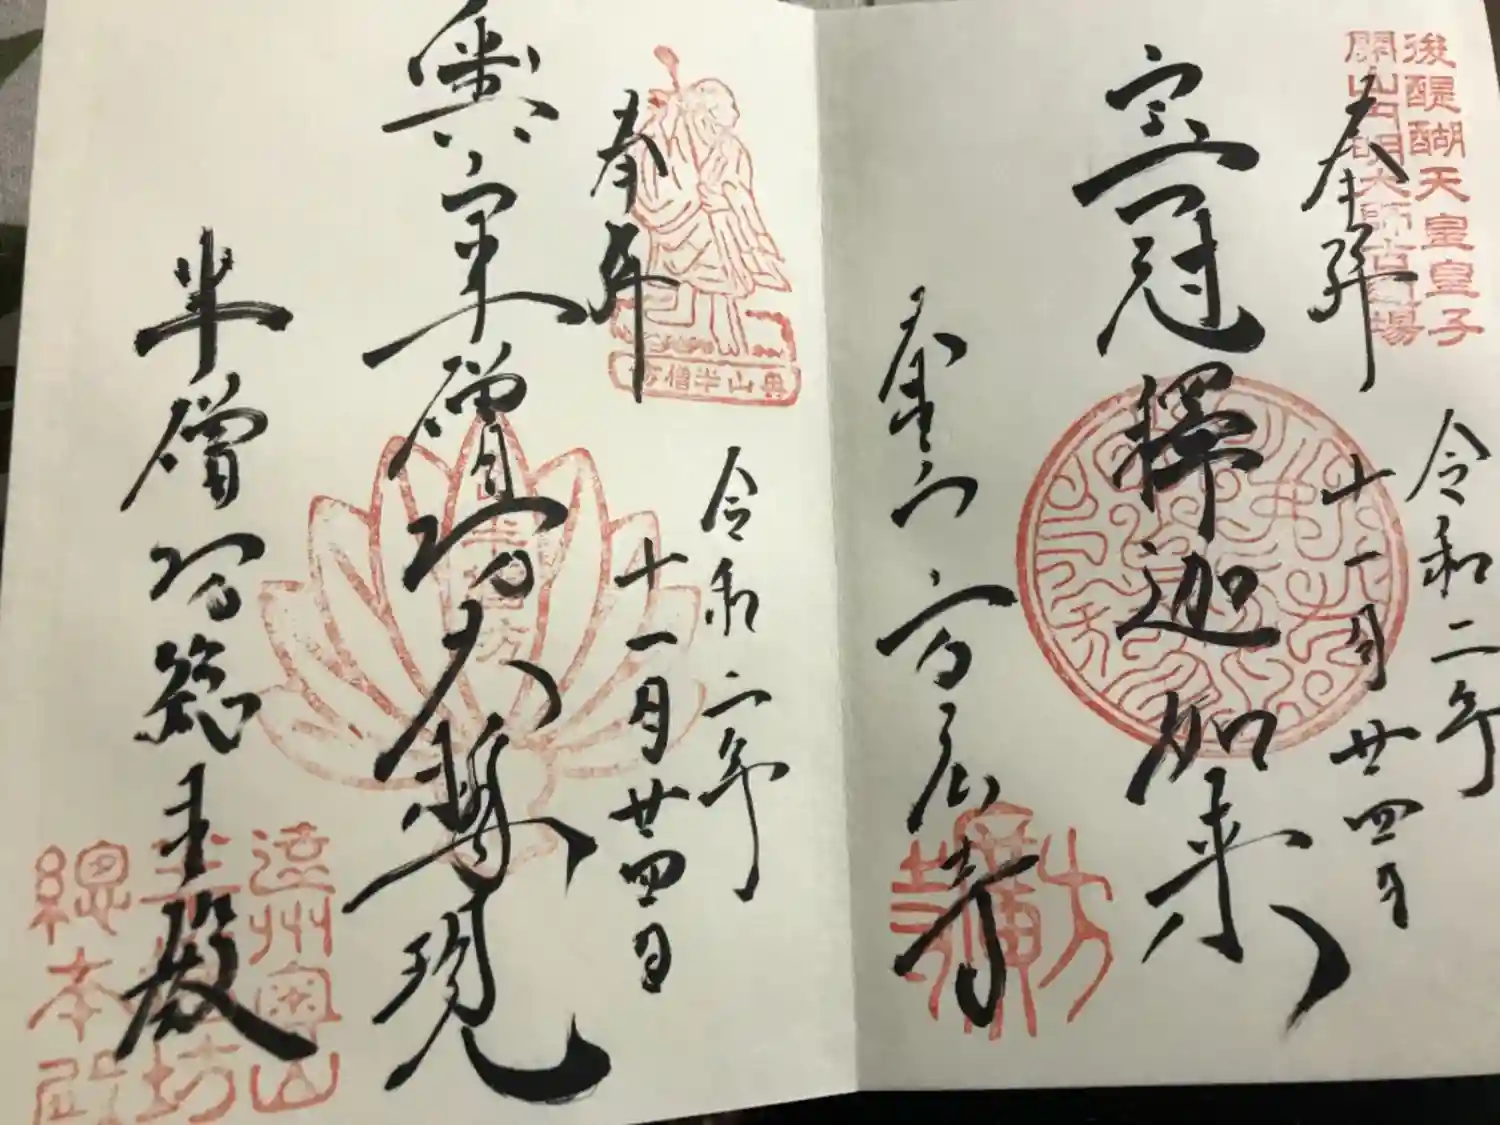 後醍醐天皇皇子
開山円明大師古道場
奉拝
令和二年
十一月廿四日
宝冠釋迦如来
奥山方広寺
方廣寺
奉拝
奥山半僧坊
令和二年
十一月廿四日
半僧坊大権現
半僧坊
半僧坊総本殿
遠州奥山
半僧坊
總本殿